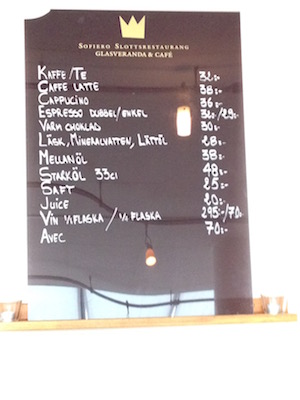 SOFIERO SLOTTSRESTAURANG
GLASVERANDA & CAFÉ
KAFFE/TE 32:-
CAFFE LATTE 38:-
CAPPUCINO 36:-
ESPRESSO DUBBEL/ENKEL 34:/29:-
VARM CHOKLAD 30:-
LÄSK, MINERALVATTEN, LÄTTÖL 28:-
MELLANÖL 38:-
STARKÖL 33cl 48:-
SAFT 25:-
JUICE 20:-
VIN 1/1 FLASKA / 1/4 FLASKA 295:-/70:-
AVEC 70:-